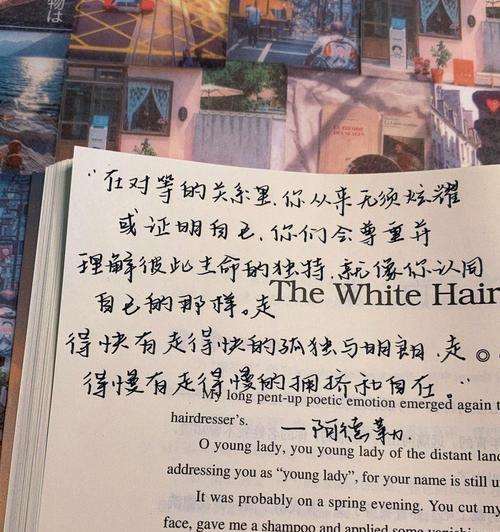 物は
"在对等的关系里，你从来无须炫耀
或证明自己，你们会尊重并
理解彼此生命的独特，就像你认同
自己的那样。走
The White Hair
得快有走得快的孤独与明朗，走
得慢有走得慢的拥挤和自在。"
My long pent-up poetic emotion emerged again t
hairdresser's.
—阿德勒.
O young lady, you young lady of the distant land
addressing you as "young lady", for your name is still u
It was probably on a spring evening. You cut my
face, gave me a shampoo and applied some vanishing